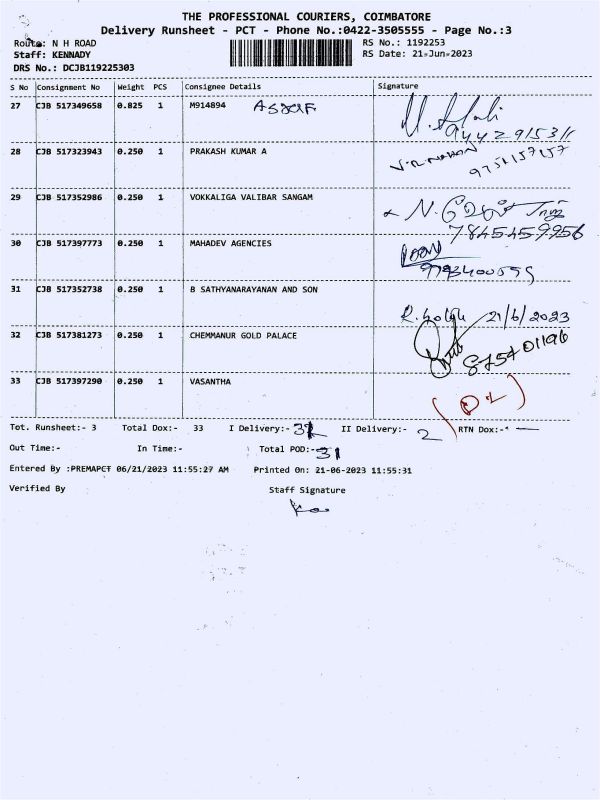 THE PROFESSIONAL COURIERS, COIMBATORE
Delivery Runsheet - PCT - Phone No.:0422-3505555 - Page No.:3
Route: N H ROAD RS No.: 1192253
Staff: KENNADY RS Date: 21-Jun-2023
DRS No.: DCJB119225303
S No Consignment No Weight PCS Consignee Details Signature
27 CJB 517349658 0.825 1 M914894
28 CJB 517323943 0.250 1 PRAKASH KUMAR A
9751157157
29 CJB 517352986 0.250 1 VOKKALIGA VALIBAR SANGAM
7845459956
30 CJB 517397773 0.250 1 MAHADEV AGENCIES
31 CJB 517352738 0.250 1 B SATHYANARAYANAN AND SON
21/6/2023
32 CJB 517381273 0.250 1 CHEMMANUR GOLD PALACE
33 CJB 517397290 0.250 1 VASANTHA
Tot. Runsheet:- 3 Total Dox:- 33 I Delivery:- II Delivery:- 2 RTN Dox:- —
Out Time:- In Time:- Total POD:- 31
Entered By :PREMAPCT 06/21/2023 11:55:27 AM Printed On: 21-06-2023 11:55:31
Verified By Staff Signature